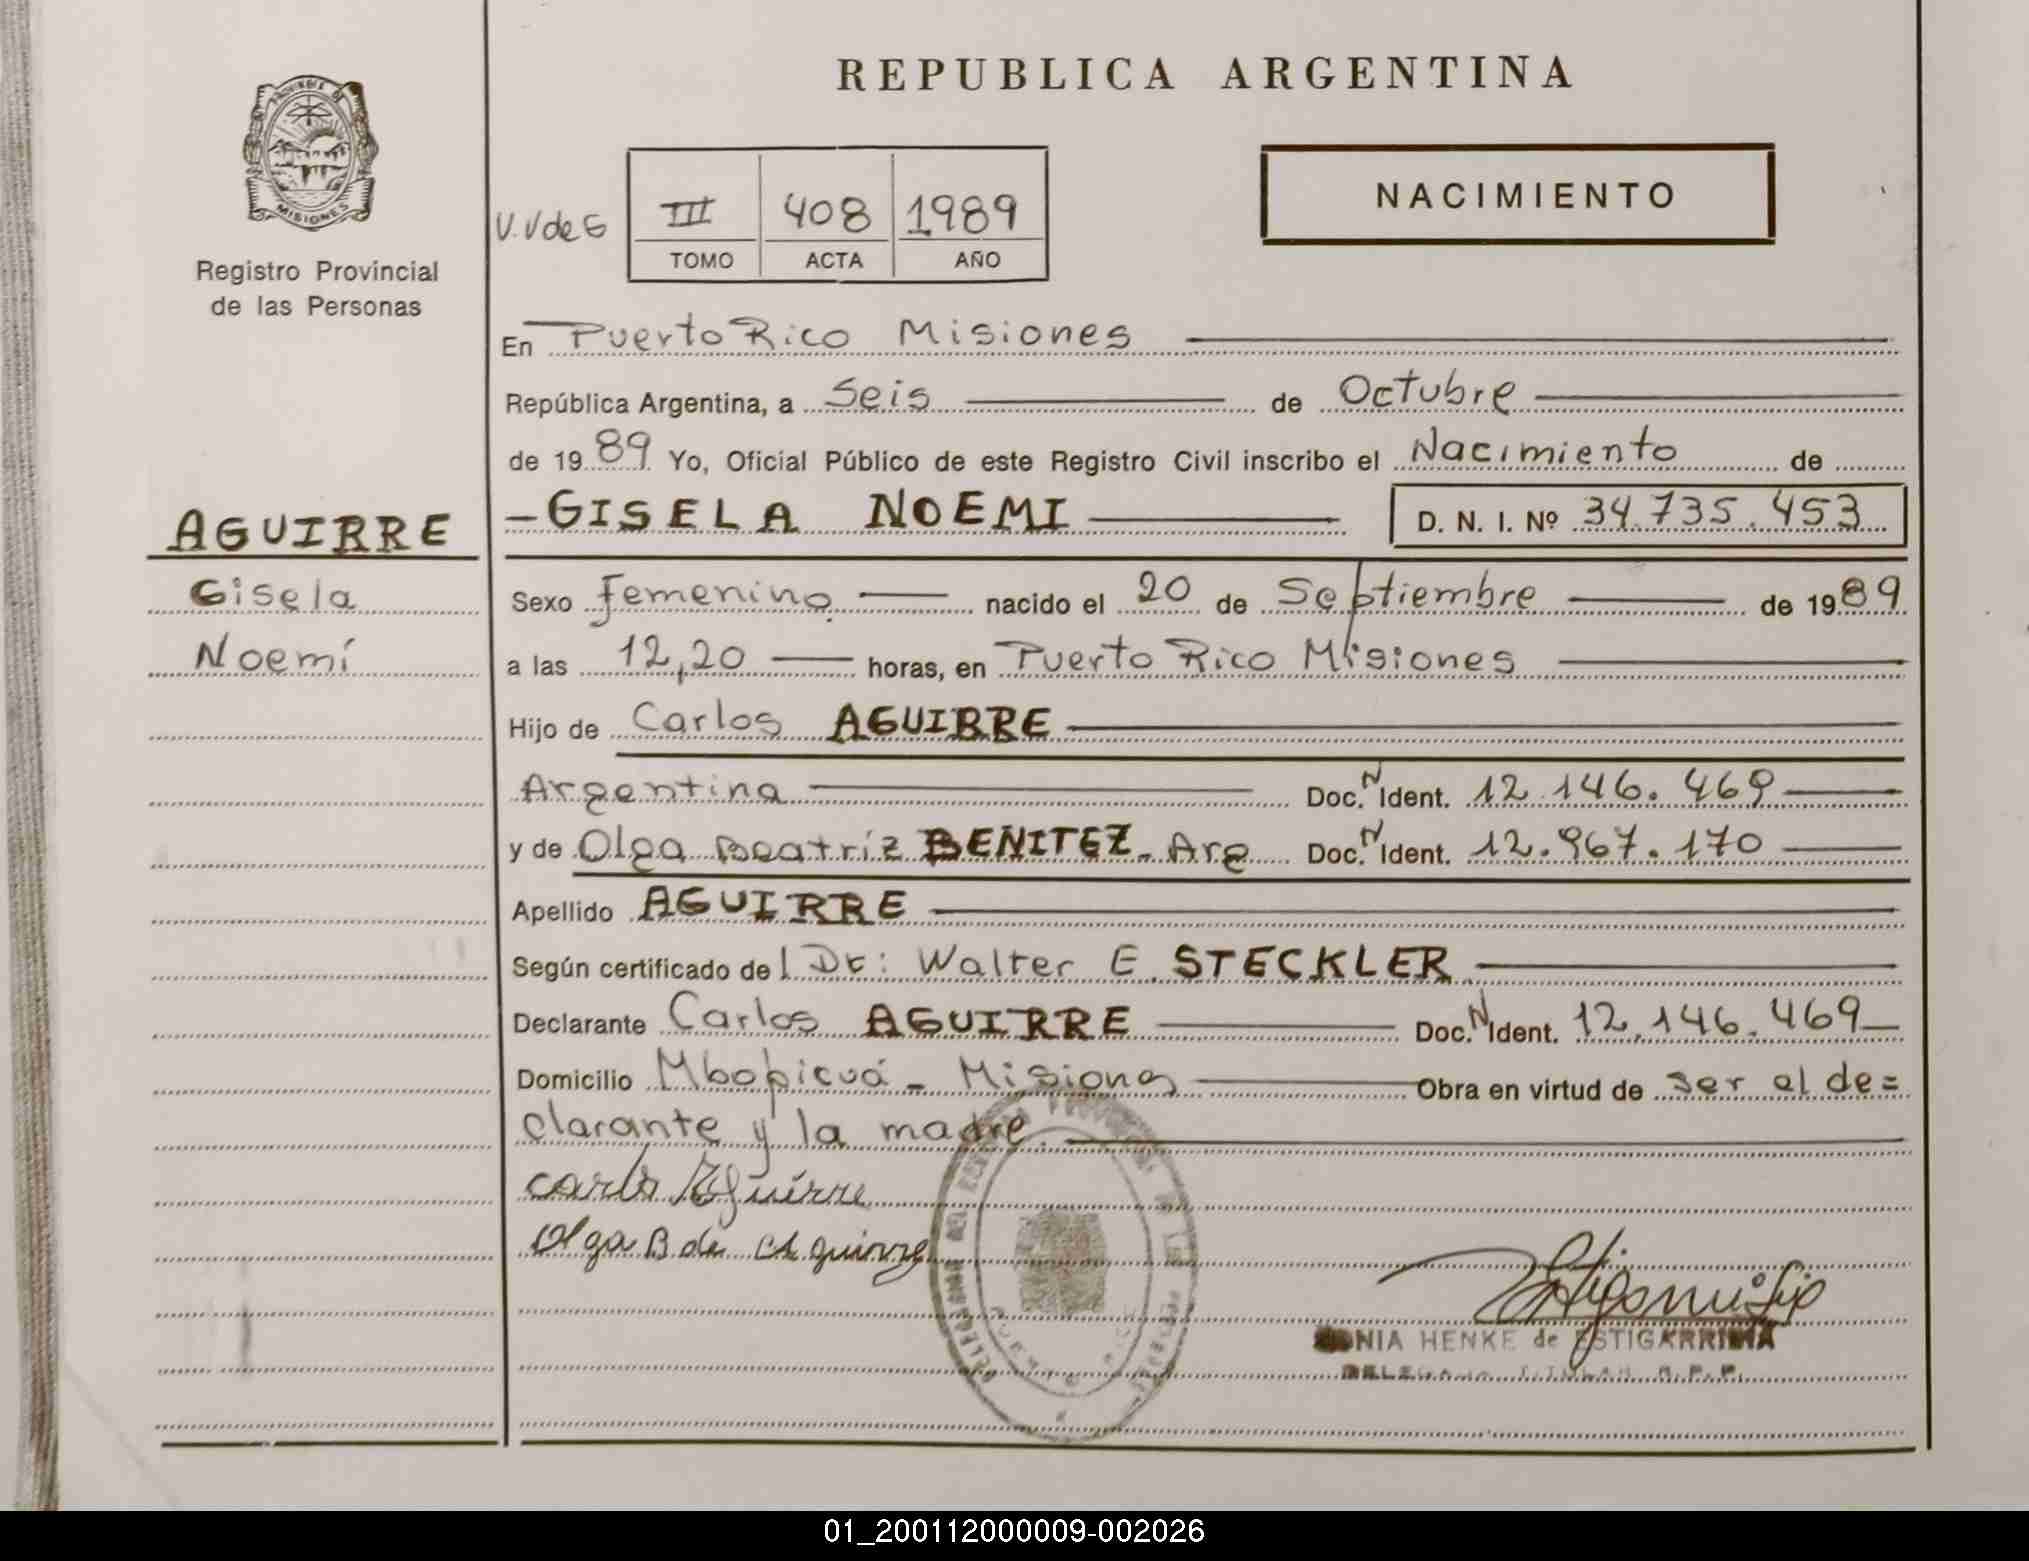 REPUBLICA ARGENTINA
PROVINCIA DE
MISIONES
Registro Provincial
de las Personas
NACIMIENTO
V.V de G
III 408 1989
TOMO ACTA AÑO
En Puerto Rico Misiones
República Argentina, a Seis de Octubre
de 1989 Yo, Oficial Público de este Registro Civil inscribo el Nacimiento de
AGUIRRE
Gisela
Noemí
- GISELA NOEMI D. N. I. Nº 34.735.453
Sexo Femenino nacido el 20 de Septiembre de 1989
a las 12,20 horas, en Puerto Rico Misiones
Hijo de Carlos AGUIRRE
Argentina Doc. N Ident. 12.146.469
y de Olga Beatríz BENITEZ - Arg Doc. N Ident. 12.967.170
Apellido AGUIRRE
Según certificado del Dr: Walter E. STECKLER
Declarante Carlos AGUIRRE Doc. N Ident. 12.146.469
Domicilio Mbopicuá - Misiones Obra en virtud de ser el de=
clarante y la madre.
Carlos Aguirre
Olga B de Aguirre
PUERTO RICO
SONIA HENKE de ESTIGARRIBIA
DELEGADA TITULAR R.P.P.
01_200112000009-002026